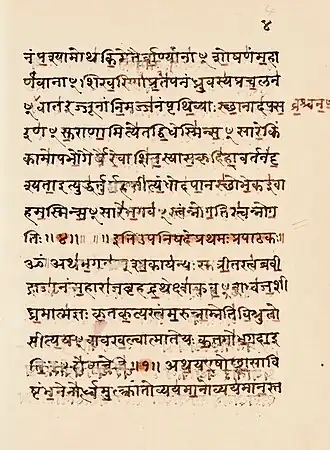 ४
नं पश्यामोथ किमेतैर्वान्यानाꣳ शोषणं महा
र्णवानाꣳ शिखरिणां प्रपतनं ध्रुवस्य प्रचलनं
व्रश्चनं
णꣳ सुराणामित्येतद्विधेस्मिन्सꣳसारे किं
कामोपभोगैर्यैरेवाशितस्यासकृदिहावर्तनं दृ
श्यत इत्युद्धर्तुमर्हसीत्यंधोदपानस्थो भेक इवा
हमस्मिन्सꣳसारे भगवꣳस्त्वं नो गतिस्त्वं नो ग
तिः ॥४॥ ॥ इति उपनिषदि प्रथमः प्रपाठकः॥
ॐ अथ भगवान् शाकायन्यः सुप्रीतस्त्वब्रवी
द्राजानं महाराज बृहद्रथेक्ष्वाकुवꣳशध्वज शी
घ्रमात्मज्ञः कृतकृत्यस्त्वं मरुन्नाम्नेति विश्रुतो
सीत्ययं वाव खल्वात्मा ते यः कतमो भगव इ
ति तꣳ होवाचेति ॥१॥ अथ य एषोच्छ्वासावि
ष्टंभनेनोर्ध्वमुत्क्रांतो व्ययमानोव्ययमानस्त